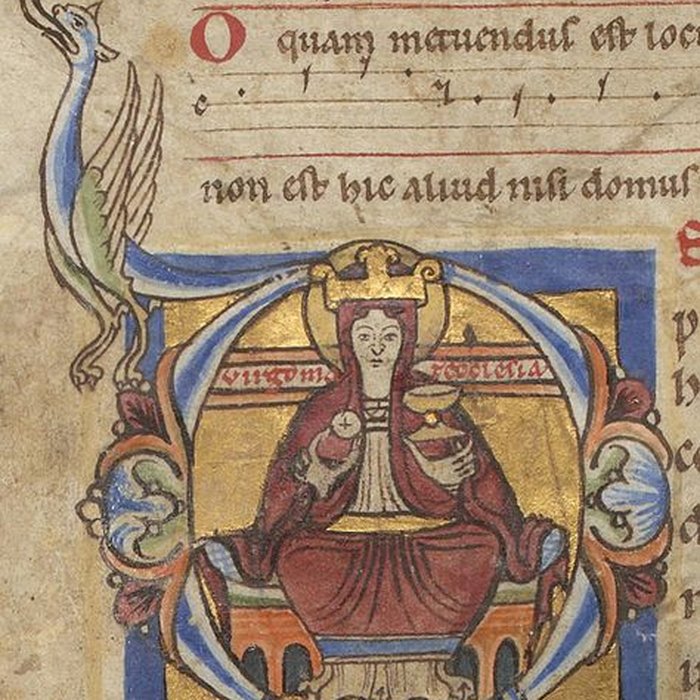 O quam metuendus est locu
non est hic aliud nisi domus
virgo ma ter eclesia